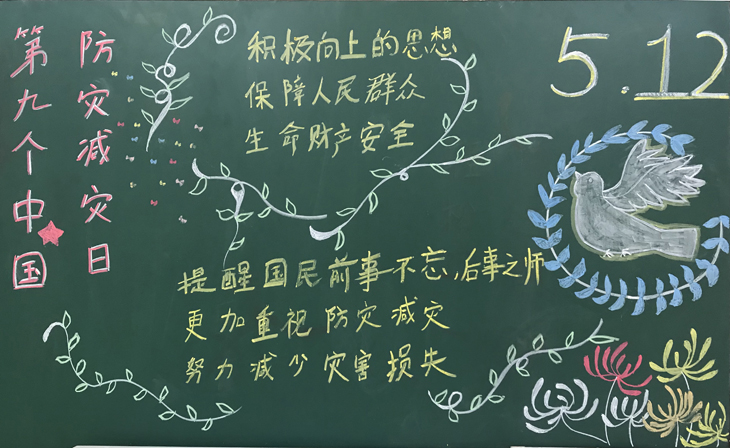 第九个中国
防灾减灾日
积极向上的思想
保障人民群众
生命财产安全
5.12
提醒国民前事不忘,后事之师
更加重视防灾减灾
努力减少灾害损失